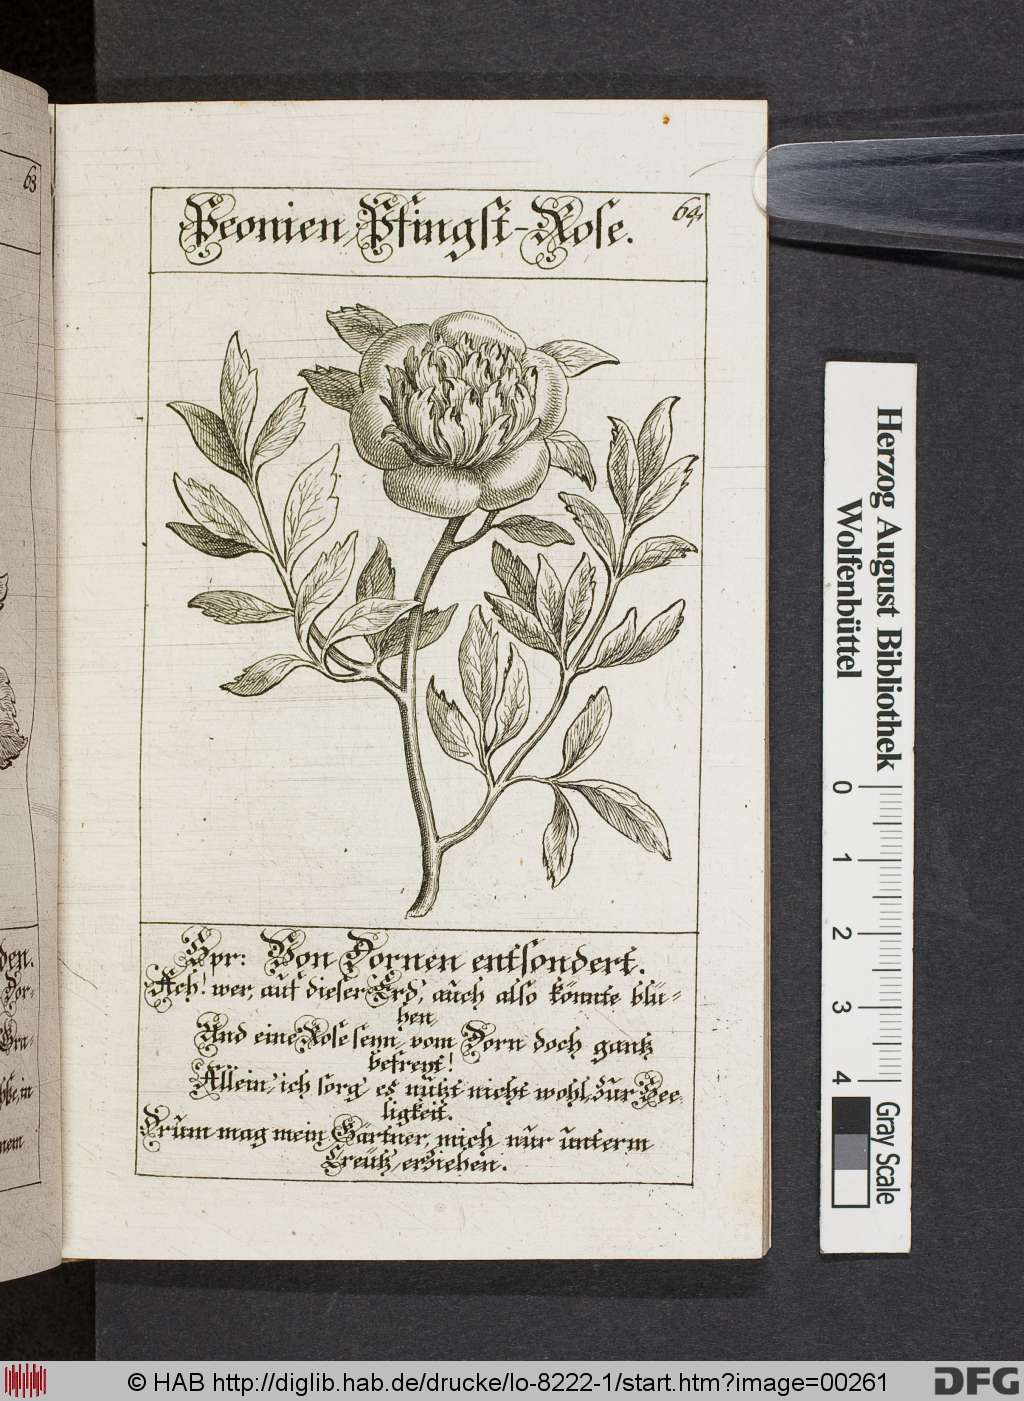 63
den.
Dor-
Gra-
Peonien, Pfingst-Rose.
64,
Spr: Von Dornen entsondert.
Ach! wer, auf dieser Erd', auch also könnte blü=
hen,
Und eine Rose seyn, vom Dorn doch gantz
befreyt!
Allein, ich sorg' es nützt nicht wohl, zur See=
ligkeit.
Drum mag mein Gärtner, mich nur unterm
Creütz, erziehen.
Herzog August Bibliothek
Wolfenbüttel
0
1
2
3
4
Gray Scale
© HAB http://diglib.hab.de/drucke/lo-8222-1/start.htm?image=00261
DFG